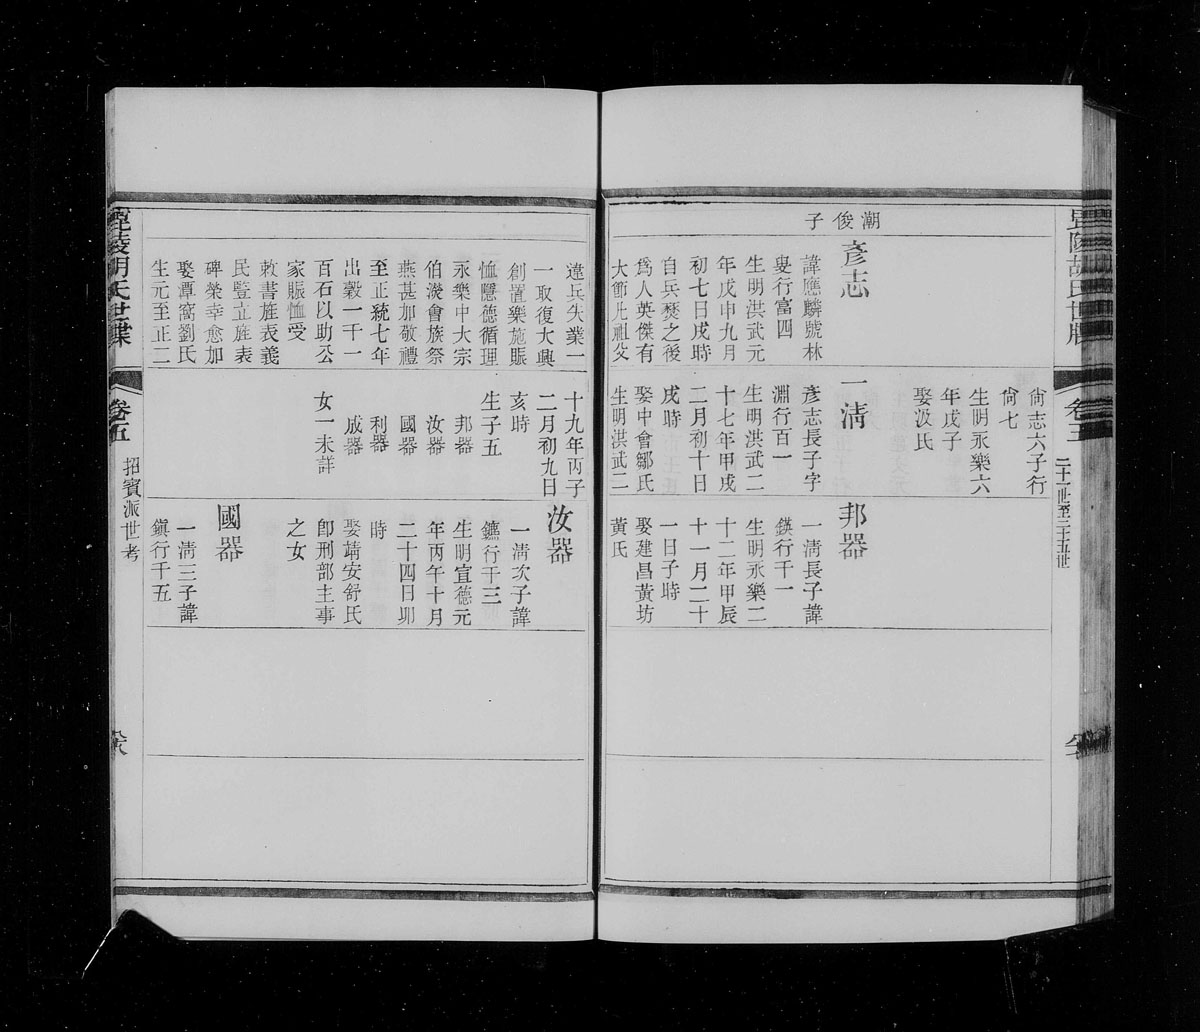 毘陵胡氏世牒
卷五
二十一世至二十五世
潮俊子
彥志
諱應麟號林
叟行富四
生明洪武元
年戊申九月
初七日戌時
自兵燹之後
爲人英傑有
大節凡祖父
尙志六子行
尙七
生明永樂六
年戊子
娶汲氏
一淸
彥志長子字
淵行百一
生明洪武二
十七年甲戌
二月初十日
戌時
娶中會鄒氏
生明洪武二
邦器
一淸長子諱
鍈行千一
生明永樂二
十二年甲辰
十一月二十
一日子時
娶建昌黃坊
黃氏
違兵失業一
一取復大興
創置樂施賑
恤隱德循理
永樂中大宗
伯濙會族祭
燕甚加敬禮
至正統七年
出穀一千一
百石以助公
家賑恤受
敕書旌表義
民豎立旌表
碑榮幸愈加
娶潭窩劉氏
生元至正二
十九年丙子
二月初九日
亥時
生子五
邦器
汝器
國器
利器
成器
女一未詳
汝器
一淸次子諱
鑣行千三
生明宣德元
年丙午十月
二十四日卯
時
娶靖安舒氏
卽刑部主事
之女
國器
一淸三子諱
鎭行千五
毘陵胡氏世牒
卷五
招賓派世考